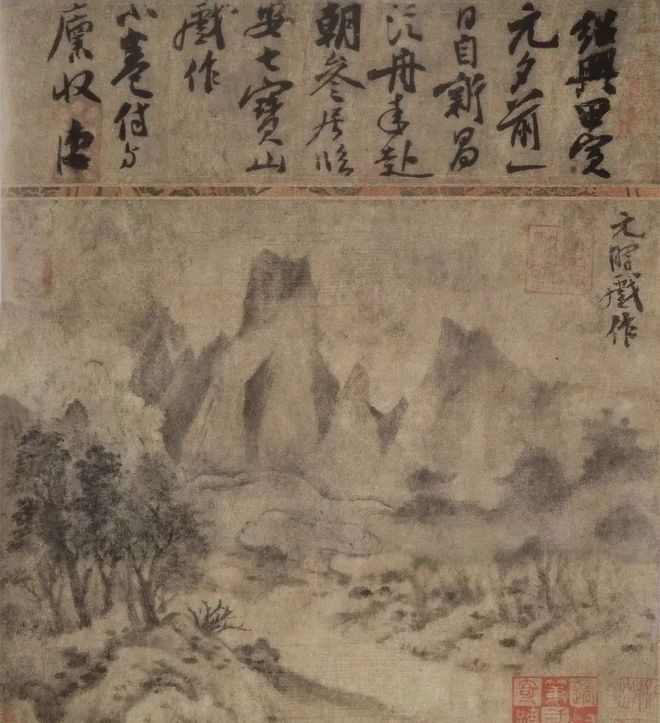 紹興甲寅
元夕前一
日自新昌
泛舟来赴
朝參居臨
安七寶山
戲作
小卷付与
收
元暉戲作